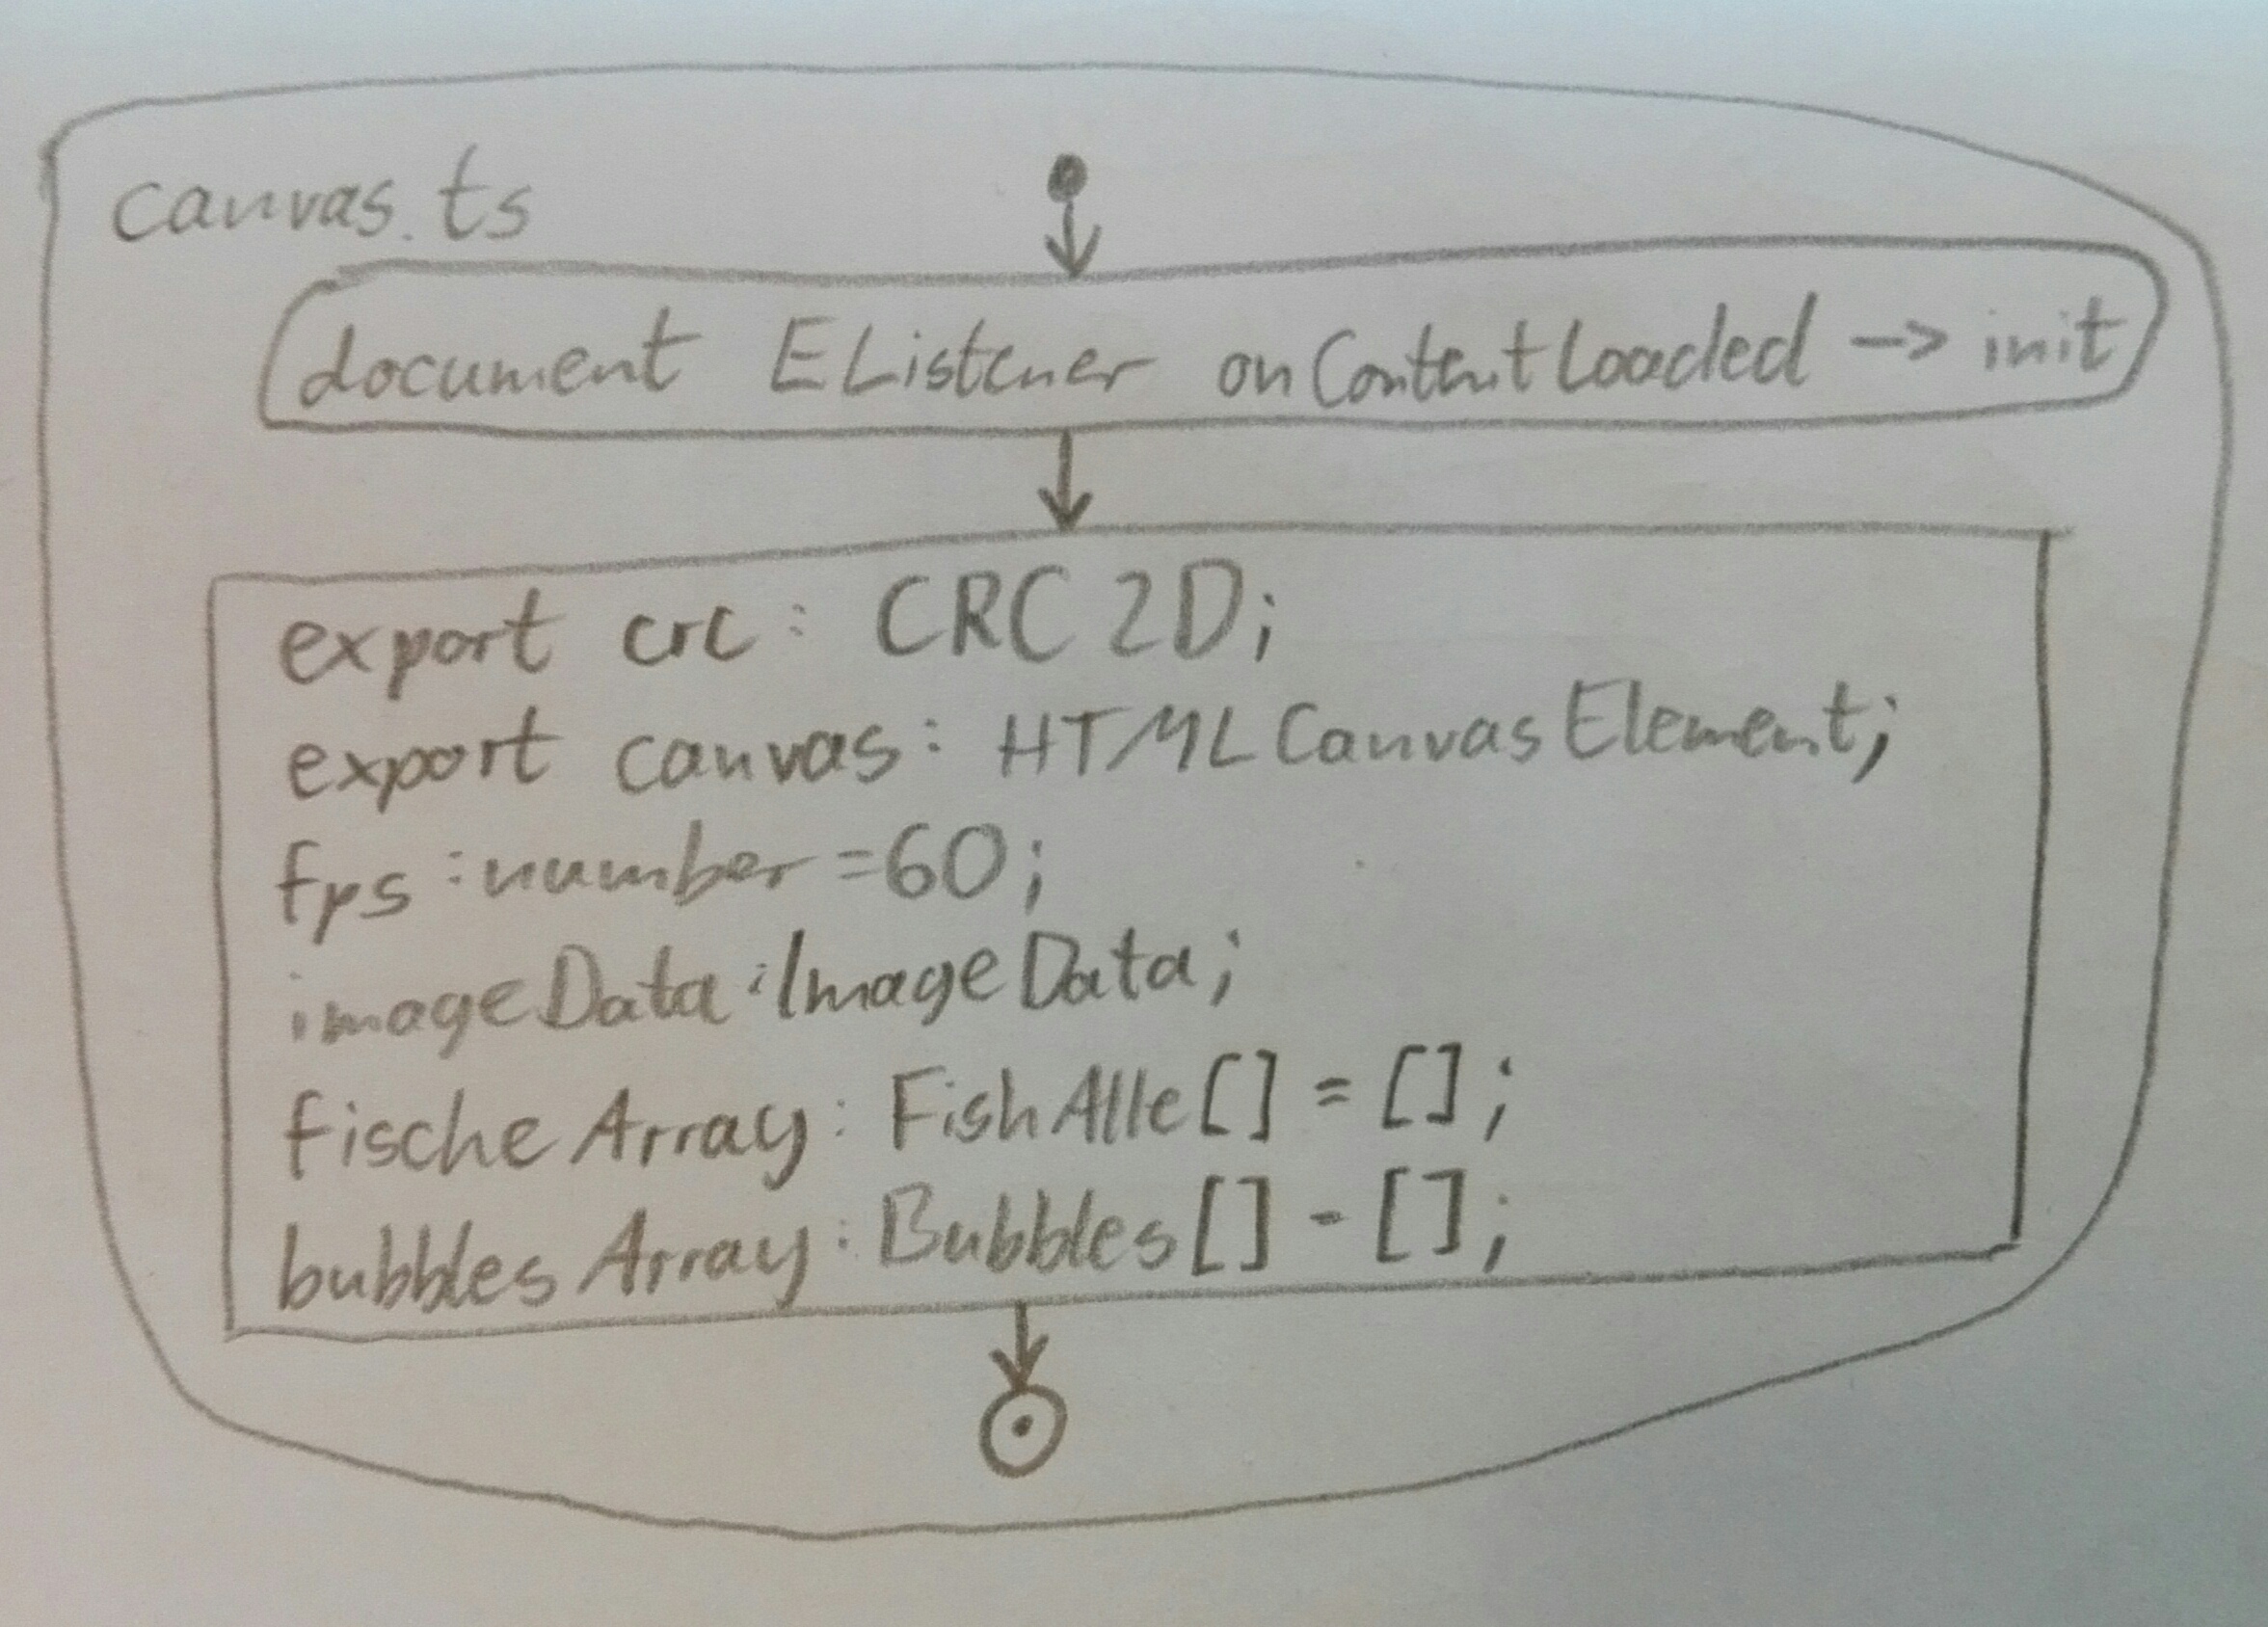 canvas.ts
document EListener onContentLoaded -> init
export crc: CRC2D;
export canvas: HTMLCanvasElement;
fps:number=60;
imageData:ImageData;
fischeArray: FishAlle[] = [];
bubblesArray: Bubbles[] - [];